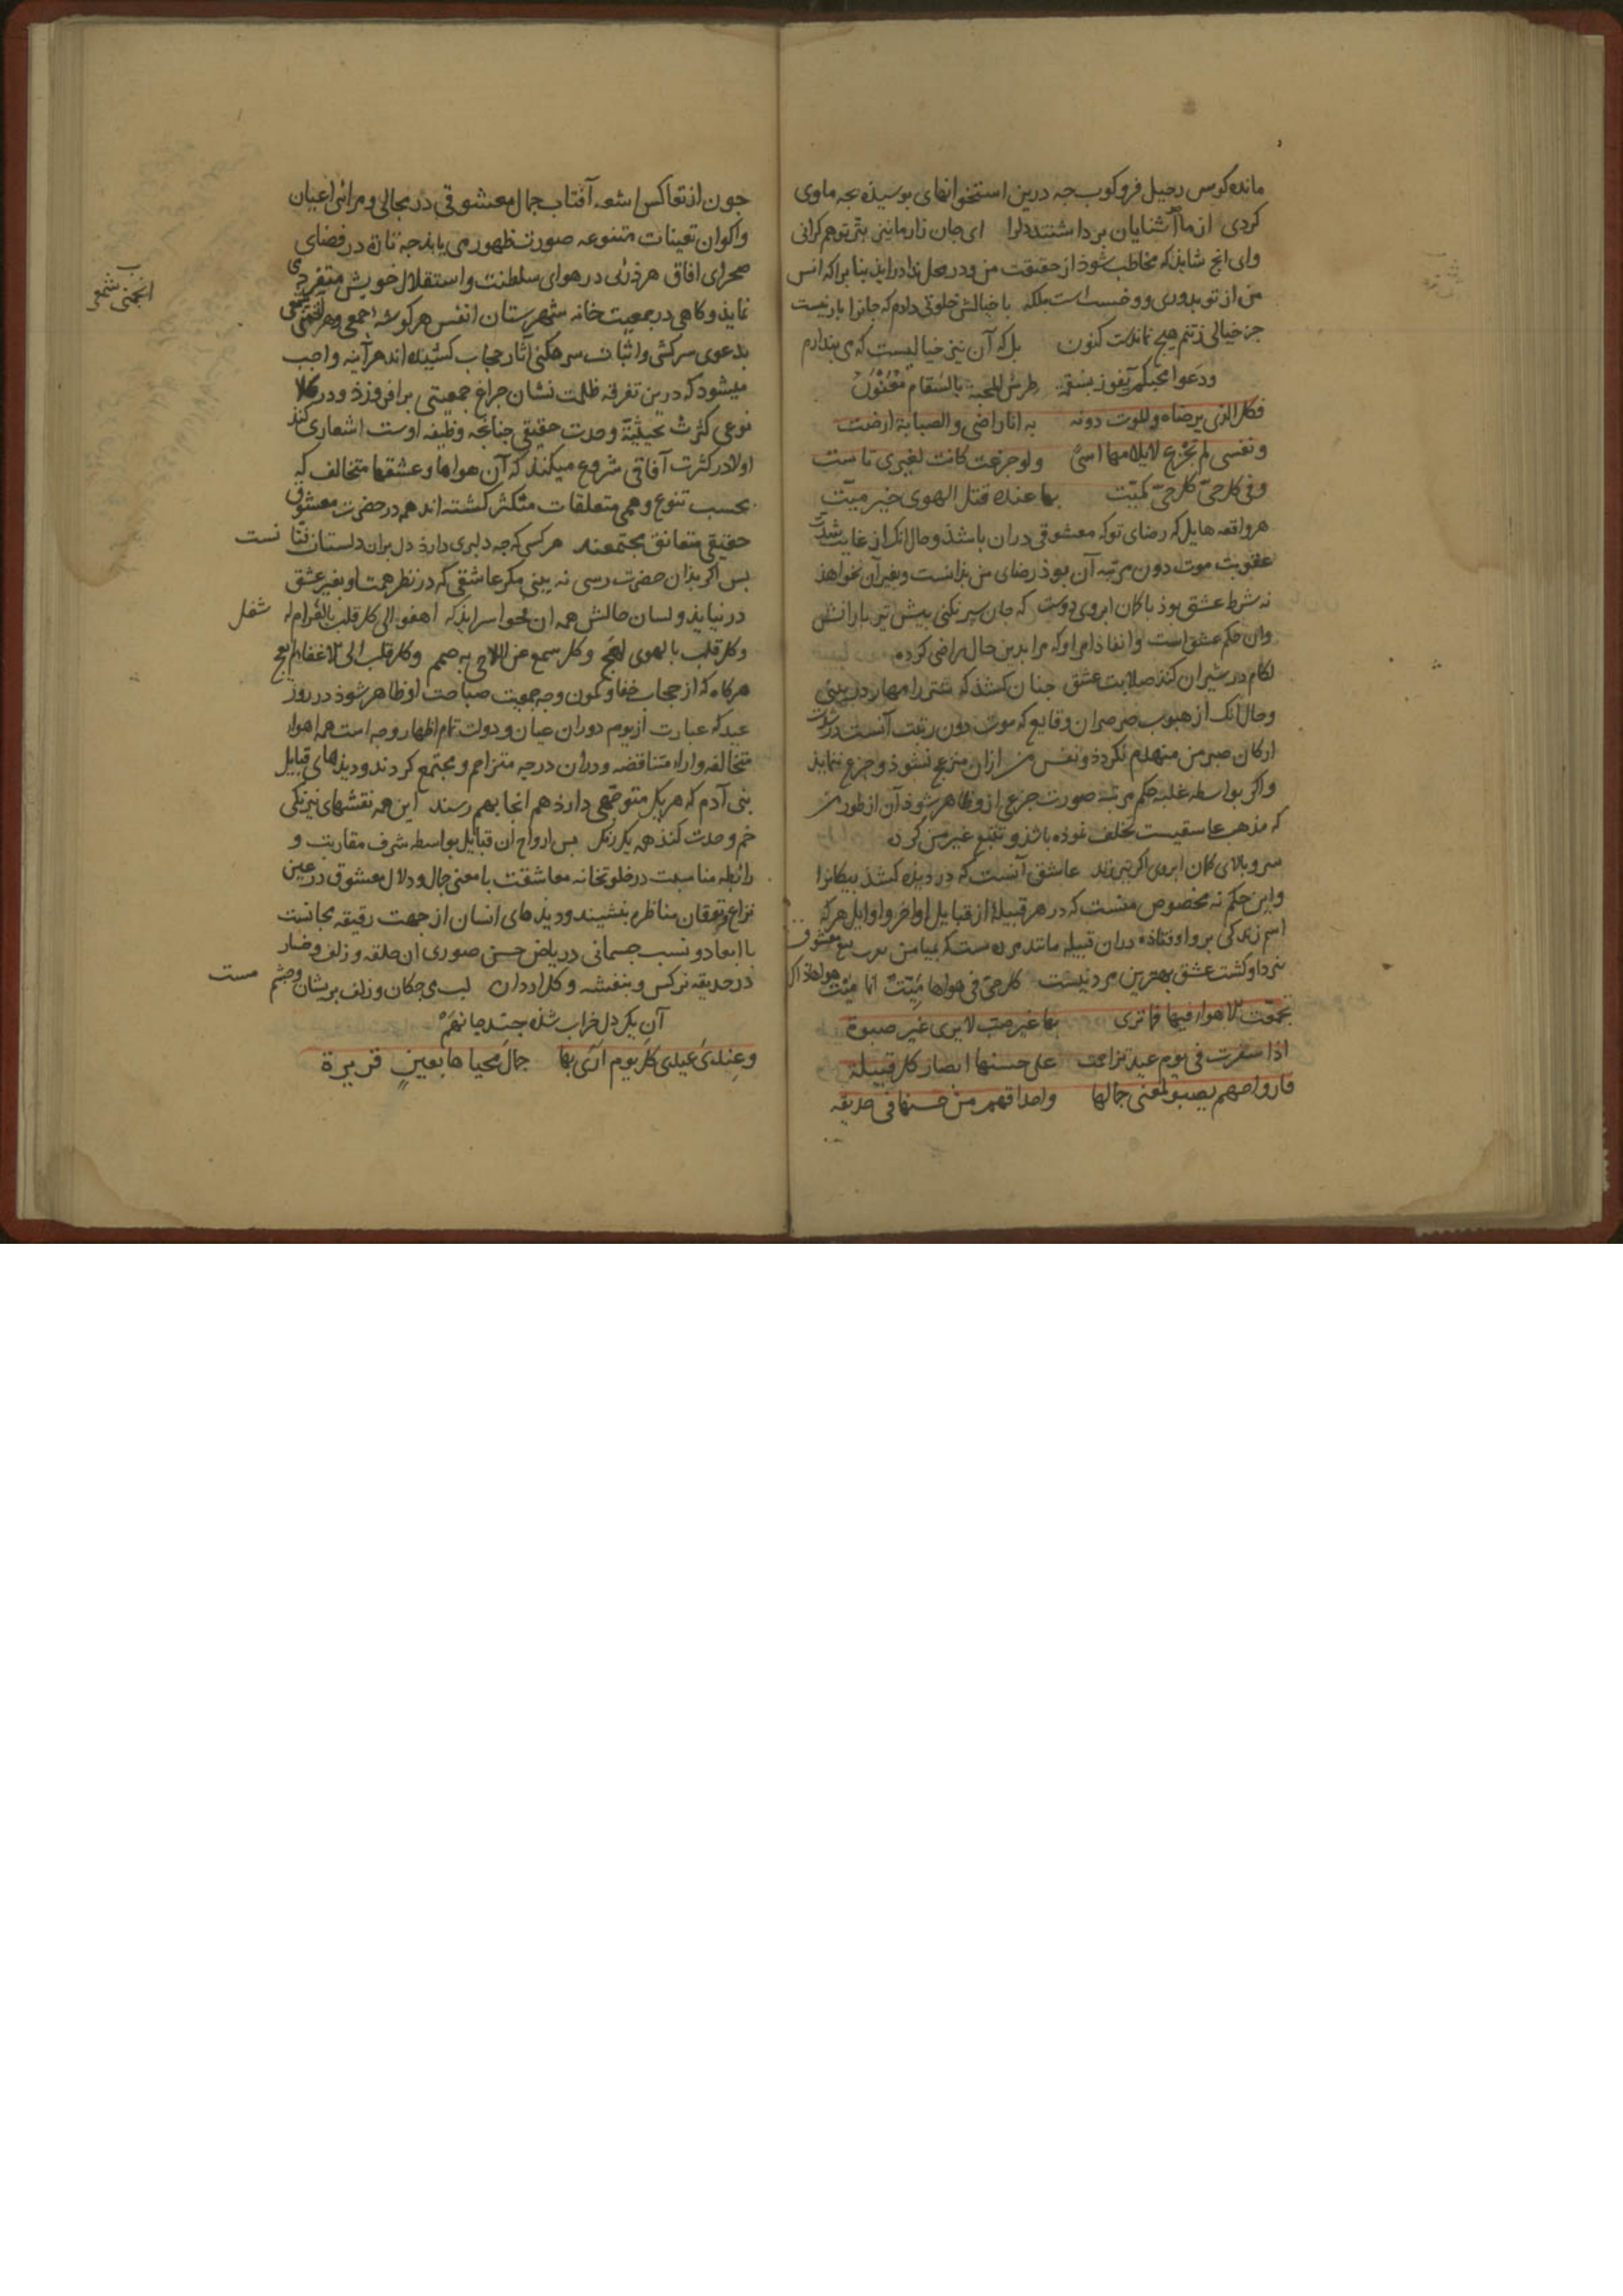 مانده کوس رحیل فرو کوب جه درین استخوانهای بوسیذه بجه ماوی
کردی از ما آشنایان برداشتند دلرا ای جان زار مانیز بتر توهم کرانی
وای انج شاید که مخاطب شوذ از حقیقت من ودر محل ندا درایذ بنا برا که انس
من از تو بدوری ووحشست است بلکه با خیالش خلوتی دارم که جانرا بار نیست
جز خیالی زتنم هیج نماندست کنون بل که آن نیز خیالیست که می بندارم
ودعوا محبکم یفوز بسقمه طرس المحبة بالسقام معنون
فکل الذی یرضاه والموت دونه به انا راضی والصبابة ارضت
ونفسی لم تجزع لایلامها اسی ولو جزعت کانت لغیری تاست
وفی کل حی کل حی کمیت بها عنده قتل الهوی خیر میت
هر واقعه هایل که رضای تو که معشوقی دران باشذ وحال انک از غایت شدت
عقوبت موت دون مرتبه آن بوذ رضای من بذانست وبغیر آن نخواهذ
نه شرط عشق بوذ با کمان ابروی دوست که جان سپر نکنی بیش تیر بارانش
وان حکم عشق است وانفاذ امر او که مرا بدین حال راضی کرده
لکام در شیران کند صلابت عشق جنان کشذ که شتر را مهار در بینی
وحال انک از هبوب صرصر ان وقایع که موت دون رتبت آنست در شدت
ارکان صبر من منهدم نکردذ ونفس من ازان منزعج نشوذ وجزع ننمایذ
واکر بواسطه غلبه حکم مرتبه صورت جزعی ازو ظاهر شوذ آن از طور من
که مذهب عاشقیست تخلف نموده باشذ وتتبع غیر من کرده
سرو بالای کمان ابروی اکر تیر زند عاشق آنست که در دیده کشذ بیکانرا
واین حکم نه مخصوص منست که در هر قبیلۀ از قبایل اواخر واوایل هر که
اسم زندکی برو اوفتاذه دران قبیله مانند مرده ست که بمیامن معشوق
نبرد او کشت عشق بهترین مردنیست کل حی فی هواها میت انما میت هواها
تجمعت الاهواء فیها فما تری بها غیر صب لا یری غیر صبوة
اذا سفرت فی یوم عید تزاحمت علی حسنها ابصار کل قبیلة
فارواحهم یصبو لمعنی جمالها واحداقهم من حسنها فی حدیقه
جون از تعاکس اشعه آفتاب جمال معشوقی در مجالی ومرائی اعیان
واکوان تعینات متنوعه صورت ظهور می یابذ جه تارة در فضای
صحرای افاق هر ذرئی در هوای سلطنت واستقلال خویش متفرد می
نمایذ وکاهی در جمعیت خانه شهرستان انفس هر کوشه اجمعی وهر
انجمنی شمعی
بدعوی سرکشی واثبات سرهنکی آثار حجاب کشیده اند هر آینه واجب
میشود که درین تفرقه ظلمت نشان جراغ جمعیتی برافروزذ ودر کلا
نوعی کثرت بحیثیة وحدت حقیقی جنانجه وظیفه اوست اشعاری کند
اولا در کثرت آفاقی شروع میکند که آن هواها وعشقها متخالف که
بحسب تنوع وهمی متعلقات متکثر کشته اند هم در حضرت معشوق
حقیقی متعانق مجتمعند هر کسی که جه دلبری دارذ دل بران دلستان فتانست
بس اکر بذان حضرت رسی نه بینی مکر عاشقی که در نظر همت او بغیر عشق
در نیایذ ولسان حالش همه ان نحوا سرایذ که اهفو الی کل قلب بالغرام له شغل
وکل قلب بالهوی لهج وکل سمع عن اللاحی به صمم وکل قلب الی الاغفا لم یعج
هرکاه که از حجاب خفا وکمون وجه جمعیت صباحت او ظاهر شوذ در روز
عید که عبارت از یوم دوران عیان ودولت تمام اظهار وجه است همه اهوا
متخالفه وآراء متناقضه ودران درجه متزاحم ومجتمع کردند ودیذهای قبایل
بنی آدم که هر یک متوجهی دارذ هم انجا بهم رسند این همه نقشهای نیرنکی
خم وحدت کنذ همه یک رنک بس ارواح ان قبایل بواسطه شرف مقاربت و
رابطه مناسبت در خلوتخانه معاشقت با معنی جمال ودلال معشوق در عین
نزاع وتعقان مناظره بنشیند ودیذهای انسان از جهت رقیقه مجانست
با ابعاد ونسب جسمانی در ریاض حسن صوری ان حلقه وزلف وخسار
در حدیقه نرکس وبنفشه وکل اردان لب می جکان وزلف بریشان وجشم مست
آن یک دل خراب شذه جند جا نهم
وعندی عیدی کل یوم اری بها جمال محیاها بعین قریرة